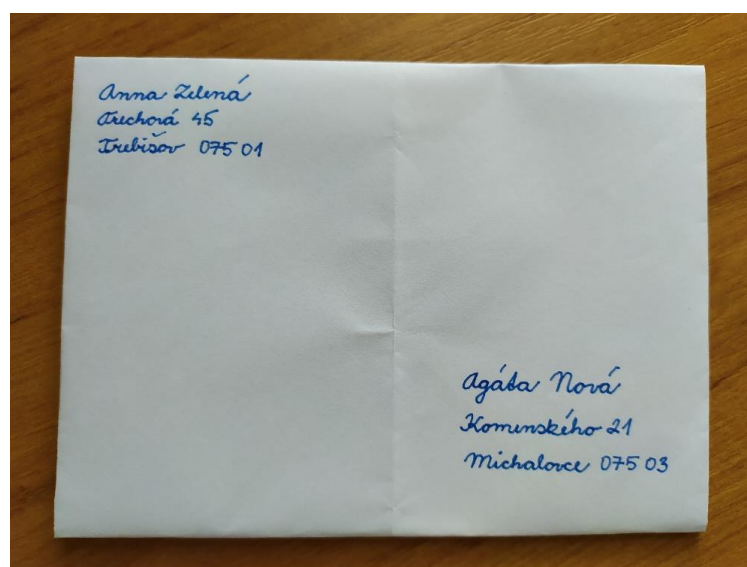 Anna Zelená
Orechová 45
Trebišov 075 01
Agáta Nová
Komenského 21
Michalovce 075 03